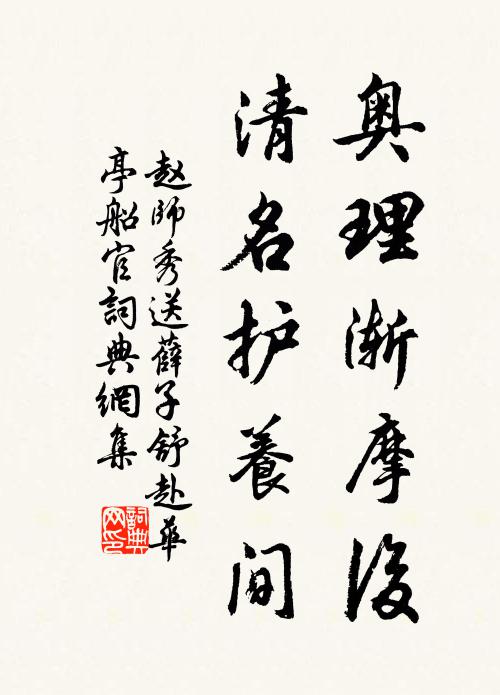 奥理渐摩後
清名护養间
赵師秀送薛子舒赴華
亭船官詞典網集
詞典网印